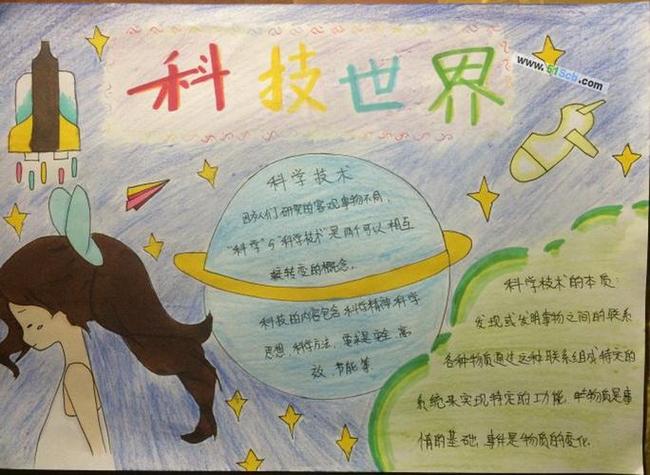 科技世界
www.51Scb.com
科学技术
因为人们研究的客观事物不同,
"科学"与"科学技术"是两个可以相互
转变的概念。
科技的内容包含科学精神科学
思想、科学方法,安全、高
效、节能等
科学技术的本质:
发现或发明事物之间的联系
各种物质通过这种联系组成特定的
系统来实现特定的功能,物质是事
情的基础,事件是物质的变化。